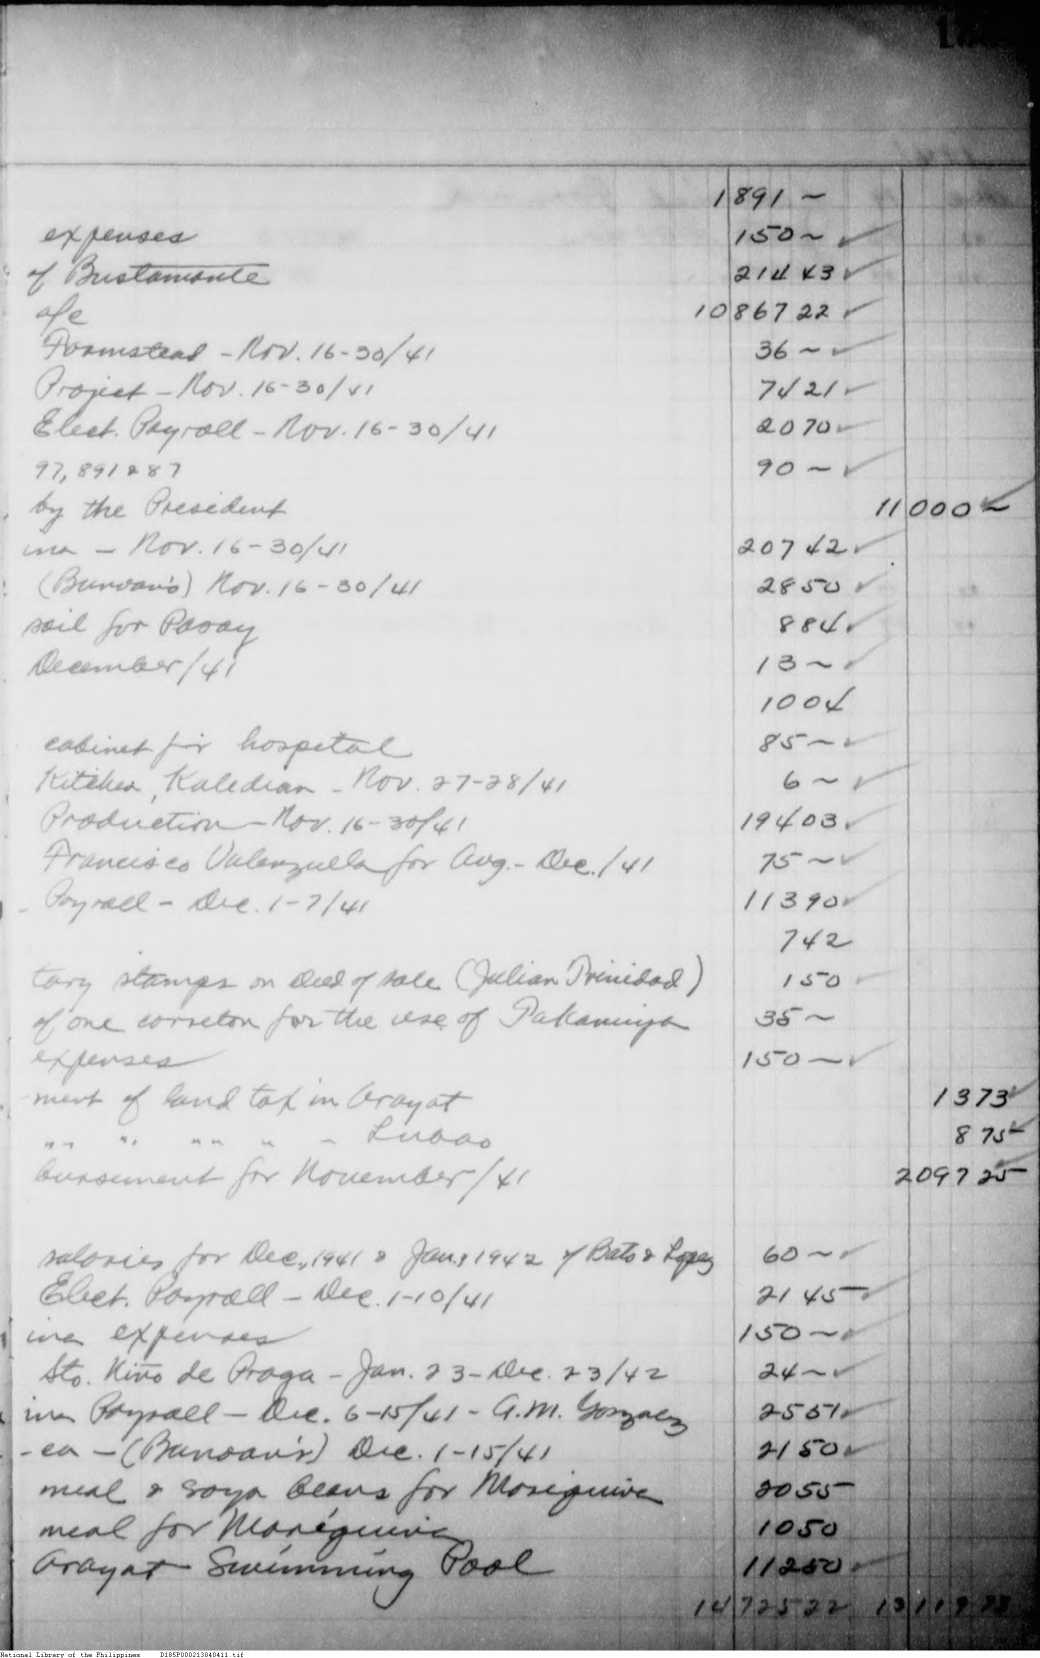 1891 ~
expenses 150 ~ ✓
of Bustamante 214 43 ✓
a/c 10867 22 ✓
Farmstead - Nov. 16-30/41 36 ~ ✓
Project - Nov. 16-30/41 74 21 ✓
Elect. Payroll - Nov. 16-30/41 20 70 ✓
97, 891 & 87 90 ~ ✓
by the President 11000 ~ ✓
ina - Nov. 16-30/41 207 42 ✓
(Bunoan's) Nov. 16-30/41 28 50 ✓
soil for Pasay 8 84 ✓
December/41 13 ~ ✓
10 04
cabinet for hospital 85 ~ ✓
Kitchen, Kaledian - Nov. 27-28/41 6 ~ ✓
Production - Nov. 16-30/41 194 03 ✓
Francisco Valenzuela for Aug. - Dec./41 75 ~ ✓
Payroll - Dec. 1-7/41 113 90 ✓
7 42
tary stamps on deed of sale (Julian Trinidad) 1 50 ✓
of one carreton for the use of 35 ~
expenses 150 ~ ✓
ment of land tax in Arayat 13 73 ✓
" " " " " " - Lubao 8 75
bursement for November/41 2097 25 ✓
salaries for Dec., 1941 & Jan., 1942 of Bats & Lopez 60 ~ ✓
Elect. Payroll - Dec. 1-10/41 21 45 ✓
ina expenses 150 ~ ✓
Sto. Niño de Praga - Jan. 23 - Dec. 23/42 24 ~ ✓
ina Payroll - Dec. 6-15/41 - A.M. Gonzalez 25 51 ✓
- ea - (Bunoan's) Dec. 1-15/41 21 50 ✓
meal & soya beans for Mariquina 20 55
meal for Mariquina 10 50
Arayat Swimming Pool 112 50 ✓
14725 22